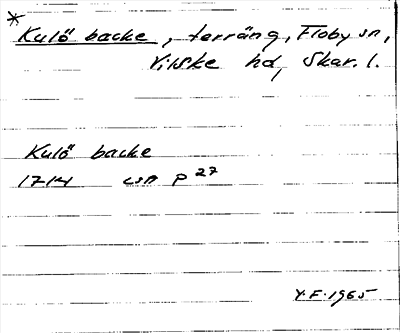 *
Kulö backe, terräng, Floby sn,
Vilske hd, Skar. l.
Kulö backe
1714 LSA P 27
Y.F. 1965